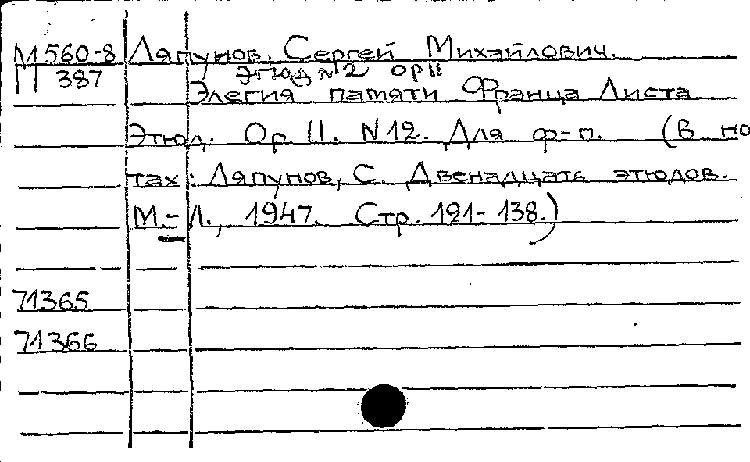 М560-8 Ляпунов, Сергей Михайлович.
П 387 Этюд №2 ор 11
Элегия памяти Франца Листа
Этюд. Ор. 11. N12. Для ф-п. (В но
тах: Ляпунов, С. Двенадцать этюдов.
М.-Л., 1947. Стр. 121-138.)
71365
71366